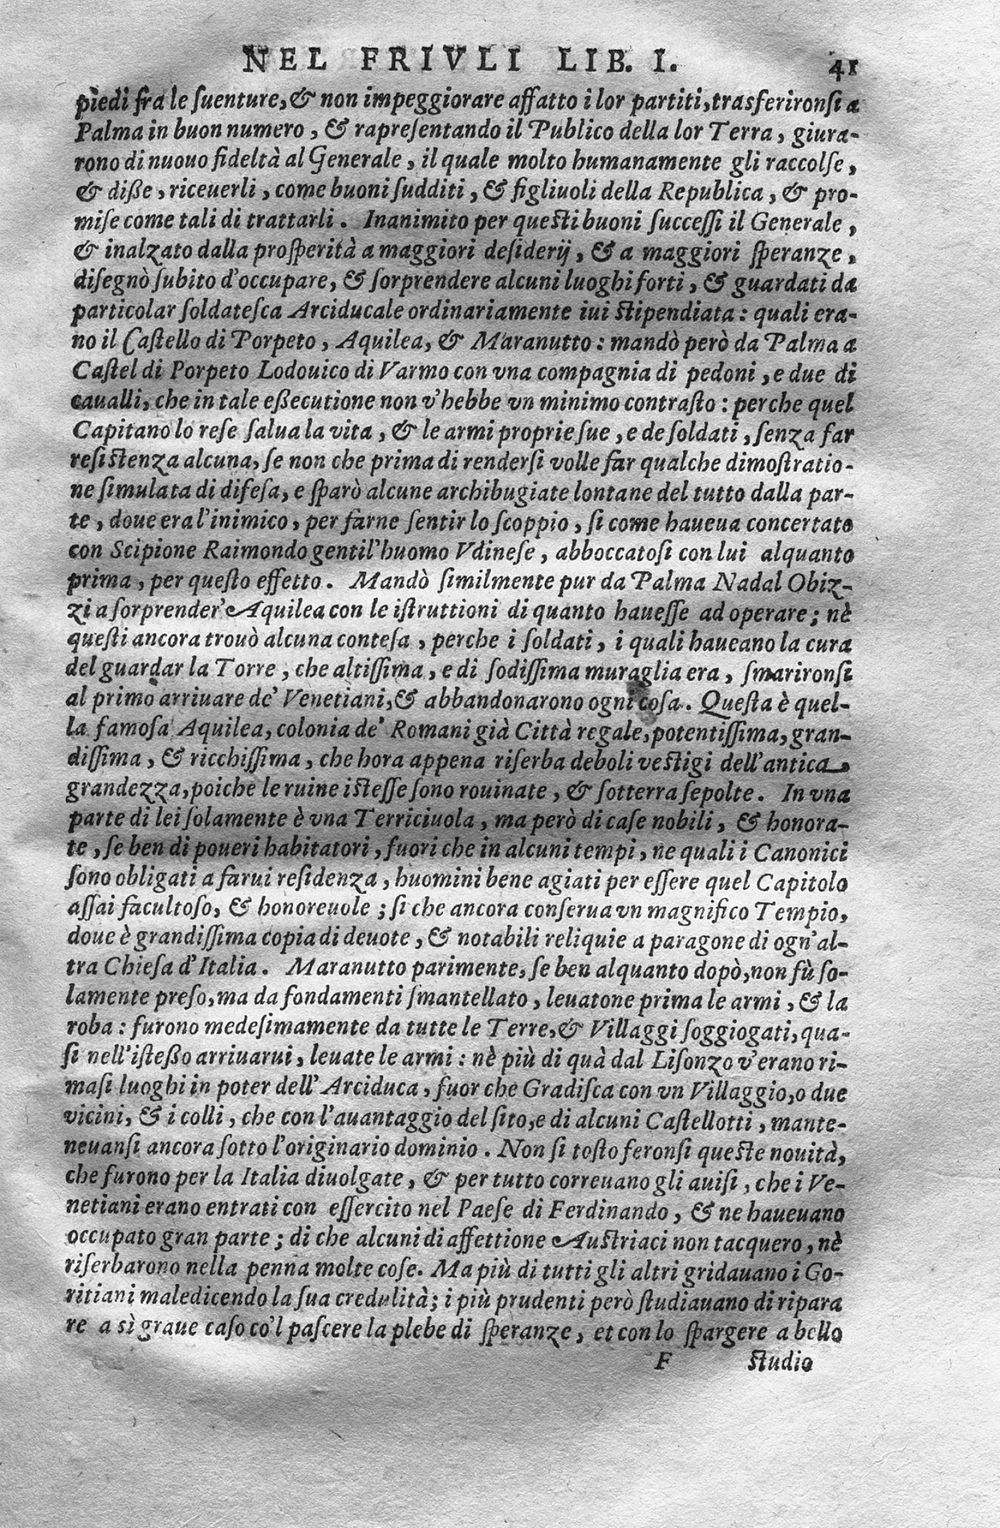 NEL FRIVLI LIB. I. 41
piedi fra le ſuenture, & non impeggiorare affatto i lor partiti, trasferironsi a
Palma in buon numero, & rapreſentando il Publico della lor Terra, giura-
rono di nuouo fideltà al Generale, il quale molto humanamente gli raccolſe,
& diße, riceuerli, come buoni ſudditi, & figliuoli della Republica, & pro-
miſe come tali di trattarli. Inanimito per queſti buoni ſucceſſi il Generale,
& inalzato dalla proſperità a maggiori deſiderij, & a maggiori ſperanze,
diſegnò ſubito d'occupare, & ſorprendere alcuni luoghi forti, & guardati da
particolar ſoldateſca Arciducale ordinariamente iui ſtipendiata: quali era-
no il Caſtello di Porpeto, Aquilea, & Maranutto: mandò però da Palma a
Caſtel di Porpeto Lodouico di Varmo con vna compagnia di pedoni, e due di
caualli, che in tale eßecutione non v'hebbe vn minimo contraſto: perche quel
Capitano lo reſe ſalua la vita, & le armi proprie ſue, e de ſoldati, ſenza far
resiſtenza alcuna, ſe non che prima di rendersi volle far qualche dimoſtratio-
ne ſimulata di difeſa, e ſparò alcune archibugiate lontane del tutto dalla par-
te, doue era l'inimico, per farne ſentir lo ſcoppio, ſi come haueua concertato
con Scipione Raimondo gentil'huomo Vdineſe, abboccatosi con lui alquanto
prima, per queſto effetto. Mandò ſimilmente pur da Palma Nadal Obiz-
zi a ſorprender' Aquilea con le iſtruttioni di quanto haueſſe ad operare; nè
queſti ancora trouò alcuna conteſa, perche i ſoldati, i quali haueano la cura
del guardar la Torre, che altiſſima, e di ſodiſſima muraglia era, ſmarironsi
al primo arriuare de' Venetiani, & abbandonarono ogni coſa. Queſta è quel-
la famoſa Aquilea, colonia de' Romani già Città regale, potentiſſima, gran-
diſſima, & ricchiſſima, che hora appena riſerba deboli veſtigi dell'antica
grandezza, poiche le ruine iſteſſe ſono rouinate, & ſotterra ſepolte. In vna
parte di lei ſolamente è vna Terriciuola, ma però di caſe nobili, & honora-
te, ſe ben di poueri habitatori, fuori che in alcuni tempi, ne quali i Canonici
ſono obligati a farui reſidenza, huomini bene agiati per eſſere quel Capitolo
aſſai facultoſo, & honoreuole; ſi che ancora conſerua vn magnifico Tempio,
doue è grandiſſima copia di deuote, & notabili reliquie a paragone di ogn'al-
tra Chieſa d'Italia. Maranutto parimente, ſe ben alquanto dopò, non fù ſo-
lamente preſo, ma da fondamenti ſmantellato, leuatone prima le armi, & la
roba: furono medeſimamente da tutte le Terre, & Villaggi ſoggiogati, qua-
ſi nell'iſteßo arriuarui, leuate le armi: nè più di quà dal Liſonzo v'erano ri-
masi luoghi in poter dell'Arciduca, fuor che Gradiſca con vn Villaggio, o due
vicini, & i colli, che con l'auantaggio del ſito, e di alcuni Caſtellotti, mante-
neuansi ancora ſotto l'originario dominio. Non ſi toſto feronſi queſte nouità,
che furono per la Italia diuolgate, & per tutto correuano gli auiſi, che i Ve-
netiani erano entrati con eſſercito nel Paeſe di Ferdinando, & ne haueuano
occupato gran parte; di che alcuni di affettione Auſtriaci non tacquero, nè
riſerbarono nella penna molte coſe. Ma più di tutti gli altri gridauano i Go-
ritiani maledicendo la ſua credulità; i più prudenti però ſtudiauano di ripara
re a sì graue caſo co'l paſcere la plebe di ſperanze, et con lo ſpargere a bello
F ſtudio